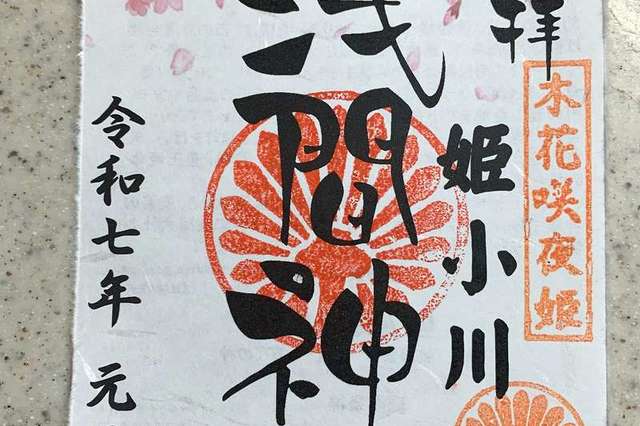 拝
木花咲夜姫
姫小川
浅間神
令和七年 元